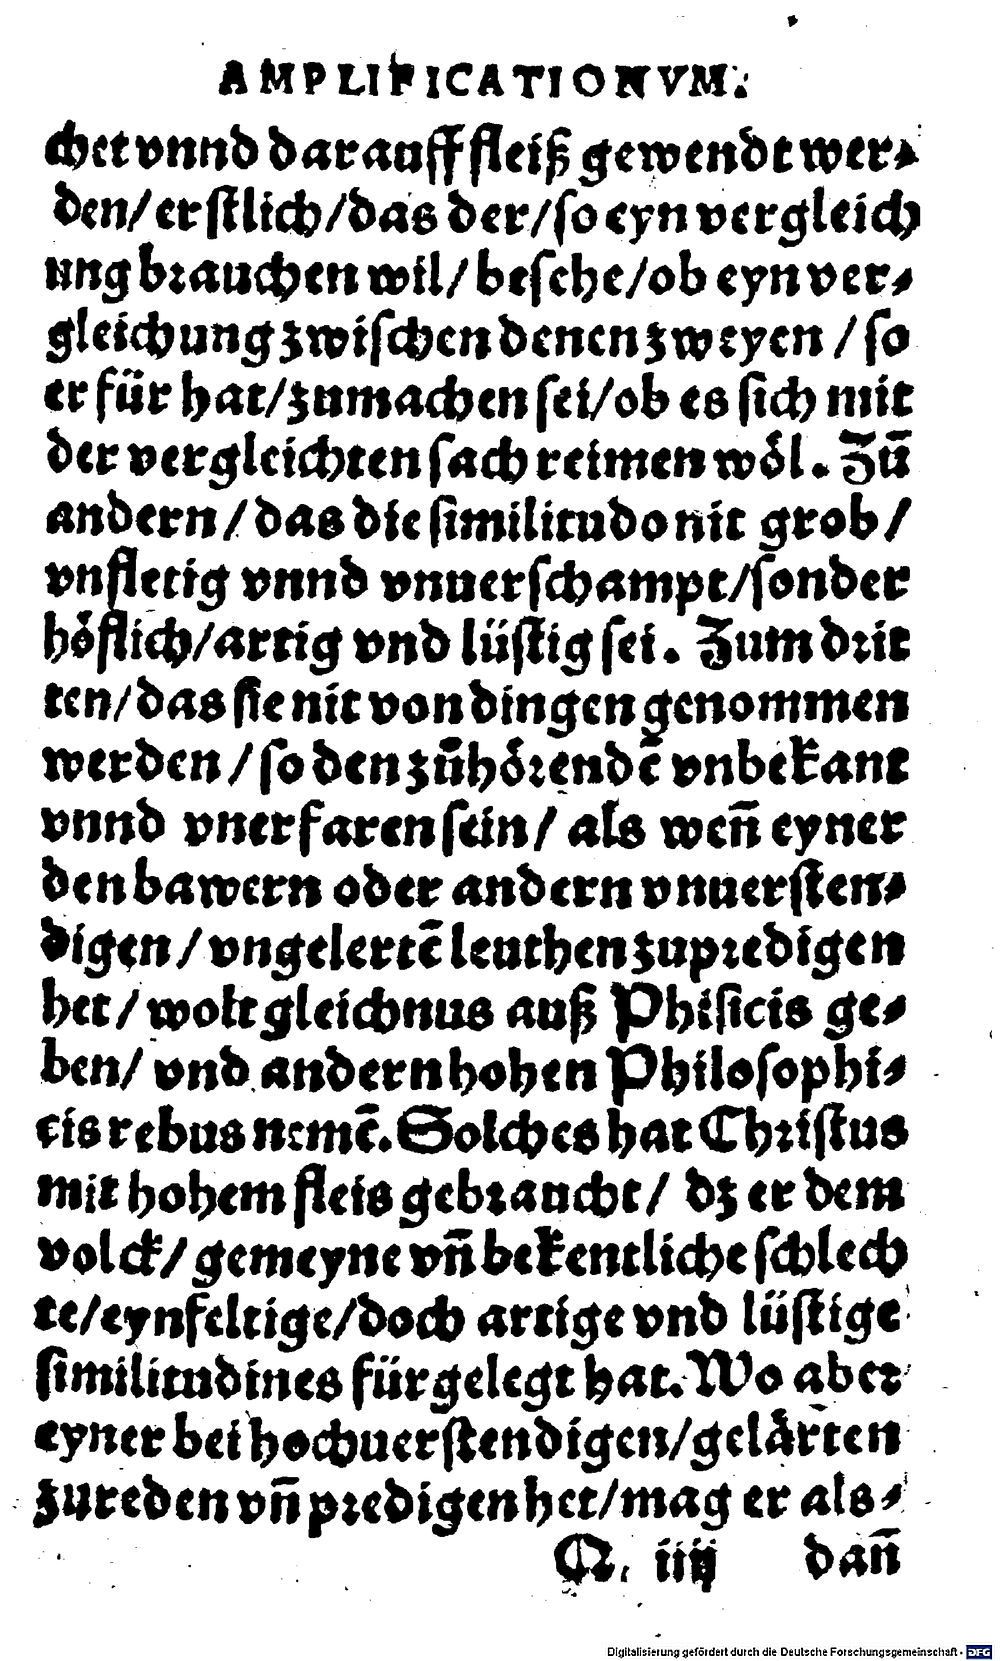 AMPLIFICATIONVM.
chet vnnd darauff fleiß gewendt wer⸗
den/ erstlich/das der/so eyn vergleich
ung brauchen wil/ besehe/ob eyn ver⸗
gleichung zwischen denen zweyen / so
er für hat/zumachen sei/ob es sich mit
der vergleichten sach reimen woͤl. Zuͦ
andern/ das die similitudo nit grob/
vnfletig vnnd vnuerschampt/sonder
hoͤflich/artig vnd lüstig sei. Zum drit
ten/das sie nit von dingen genommen
werden/so den zuͦhoͤrendẽ vnbekant
vnnd vnerfaren sein/ als weñ eyner
den bawern oder andern vnuersten⸗
digen/ vngelertẽ leuthen zupredigen
het/ wolt gleichnus auß Phisicis ge⸗
ben/ vnd andern hohen Philosophi⸗
cis rebus nemẽ. Solches hat Christus
mit hohem fleis gebraucht/ dz er dem
volck/ gemeyne vñ bekentliche schlech
te/eynfeltige/doch artige vnd lüstige
similitudines fürgelegt hat. Wo aber
eyner bei hochuerstendigen/gelaͤrten
zureden vñ predigen het/mag er als⸗
iiij dañ
Digitalisierung gefördert durch die Deutsche Forschungsgemeinschaft - DFG